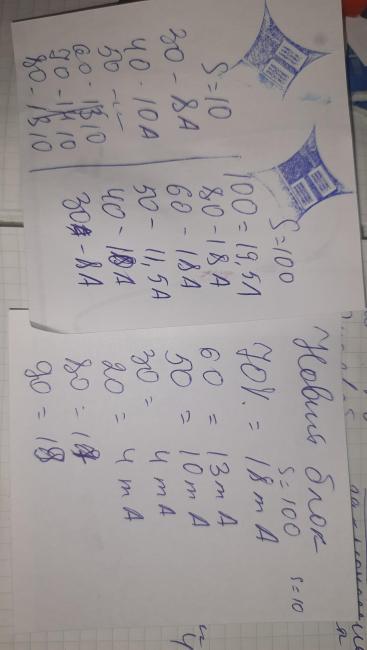 S=10
30 - 8A
40 - 10A
50 - "-
60 - 10
80 - 10
S=100
100 = 19,5A
80 - 18A
60 - 18A
50 - 11,5A
40 - A
30 - 8A
Новый блок
S=100 S=10
70% = 18mA
60 = 13mA
50 = 10mA
30 = 4mA
20 = 4mA
80 = 18
90 = 18